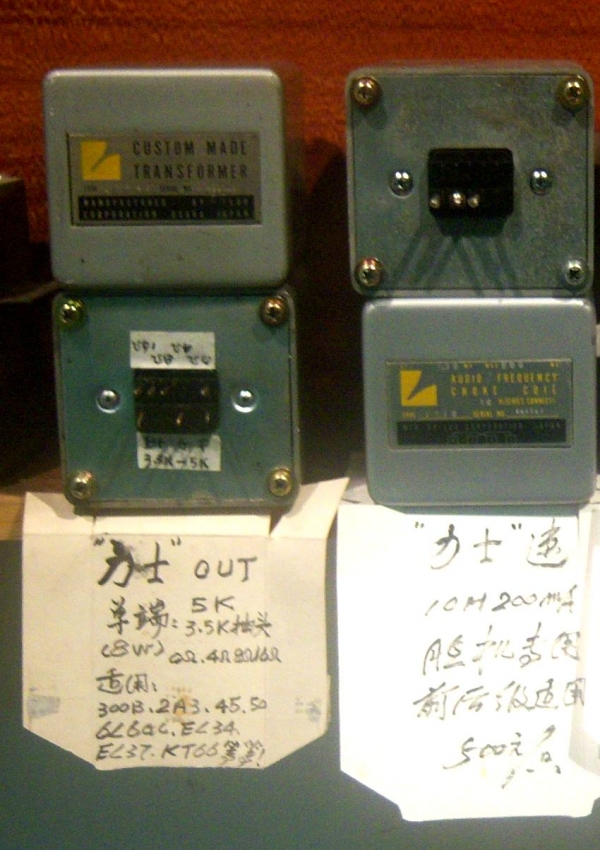 CUSTOM MADE
TRANSFORMER
TYPE SERIAL NO.
MANUFACTURED BY LUX
CORPORATION OSAKA JAPAN
3.5K 5K
AUDIO FREQUENCY
CHOKE COIL
TYPE SERIAL NO.
MFD BY LUX CORPORATION JAPAN
"力士" OUT
单端: 5K
3.5K抽头
(8W) 0Ω.4Ω8Ω16Ω
适用:
300B.2A3.45.50
6L6GC.EL34.
EL37.KT66等等!
"力士"
10H 200mA
胆机专用
前后级适用
500元